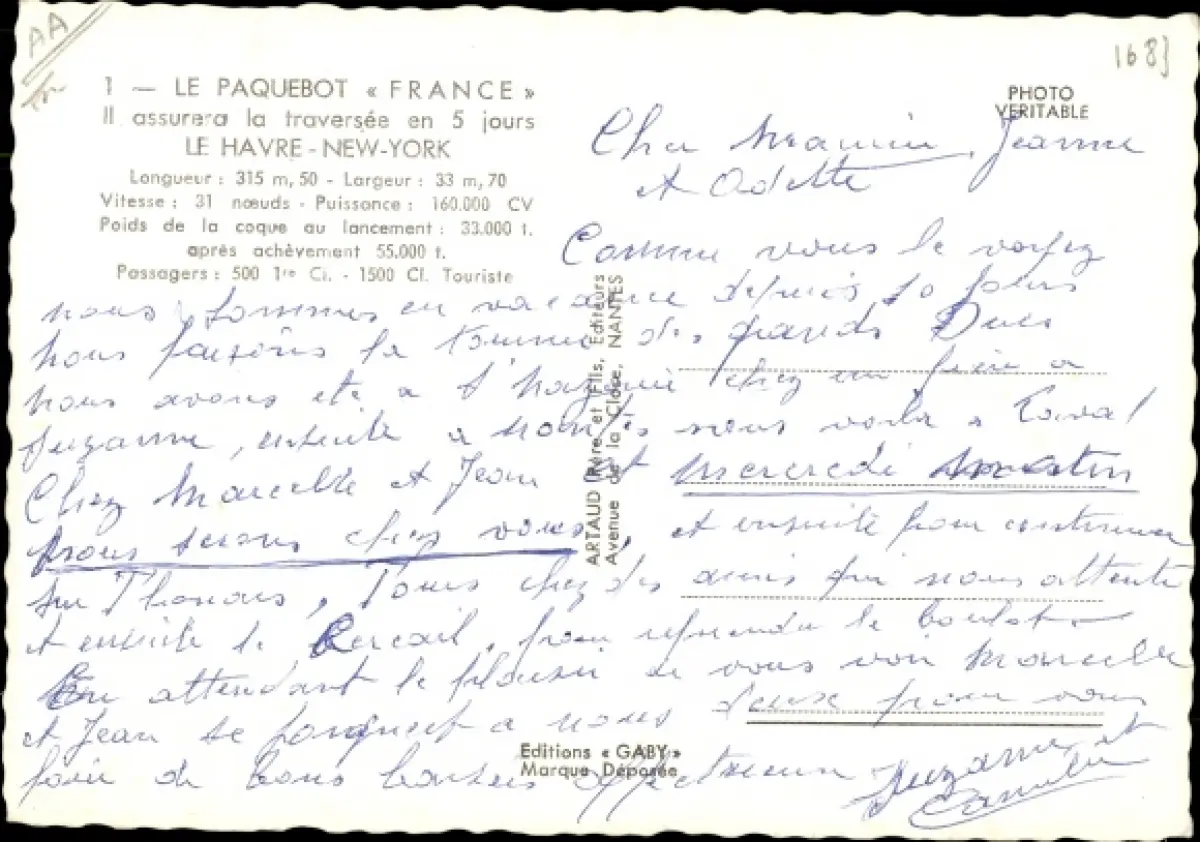 AA
1683
1 — LE PAQUEBOT « FRANCE »
Il assurera la traversée en 5 jours
LE HAVRE - NEW-YORK
Longueur : 315 m, 50 - Largeur : 33 m, 70
Vitesse : 31 nœuds - Puissance : 160.000 CV
Poids de la coque au lancement : 33.000 t.
après achèvement 55.000 t.
Passagers : 500 1re Cl. - 1500 Cl. Touriste
PHOTO
VERITABLE
Jeanne
et Odette
Comme vous le voyez
nous sommes en vacance depuis 10 jours
nous faisons la tournée des grands Ducs
nous avons été a chez un frère a
Suzanne, ensuite a nantes nous voila a Laval
Chez Marcelle et Jean et Mercredi matin
nous serons chez vous, et ensuite pour continuer
sur Thouars, Tours chez des amis qui nous attente
et ensuite le Bercail, pour reprendre le boulot
En attendant le plaisir de vous voir Marcelle
et Jean se joignent a nous deux pour vous
faire de bons baisers affectueux Suzanne et
Camille
ARTAUD (Père et Fils, Editeurs
Avenue de la Close, NANTES
Editions « GABY »
Marque Déposée